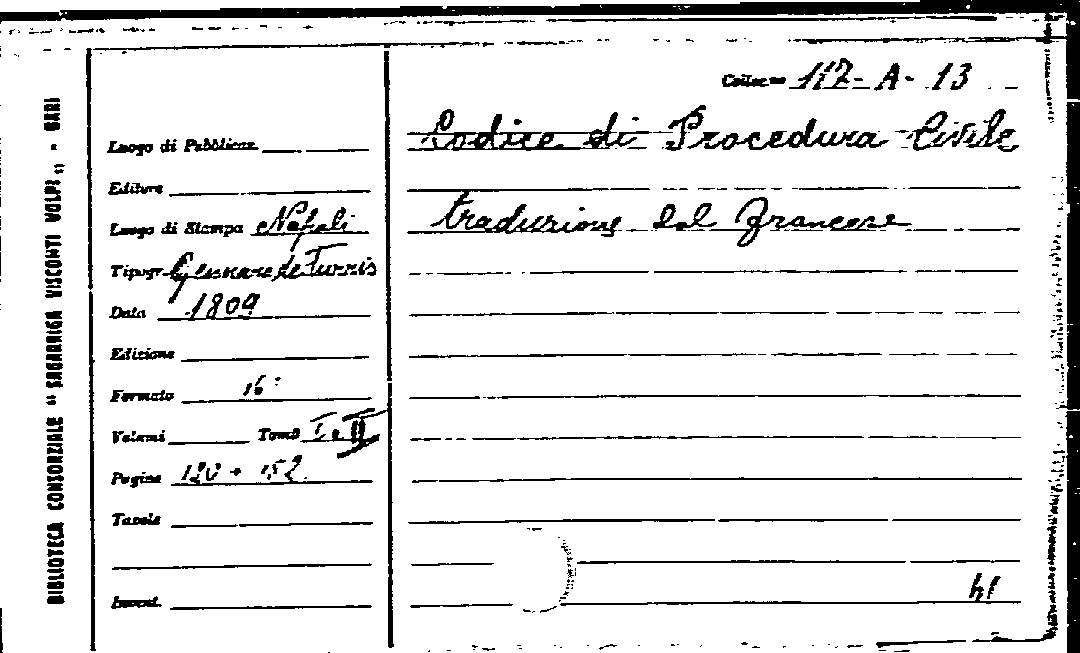 BIBLIOTECA CONSORZIALE " SAGARRIGA VISCONTI VOLPI „ - BARI
Colloc.ne 112 - A - 13
Codice di Procedura Civile
traduzione dal Francese
Luogo di Pubblicaz.
Editore
Luogo di Stampa Napoli
Tipogr. Gennaro de Turris
Data 1809
Edizione
Formato 16°
Volumi Tomi I e II
Pagine 120 + 152
Tavole
Invent.